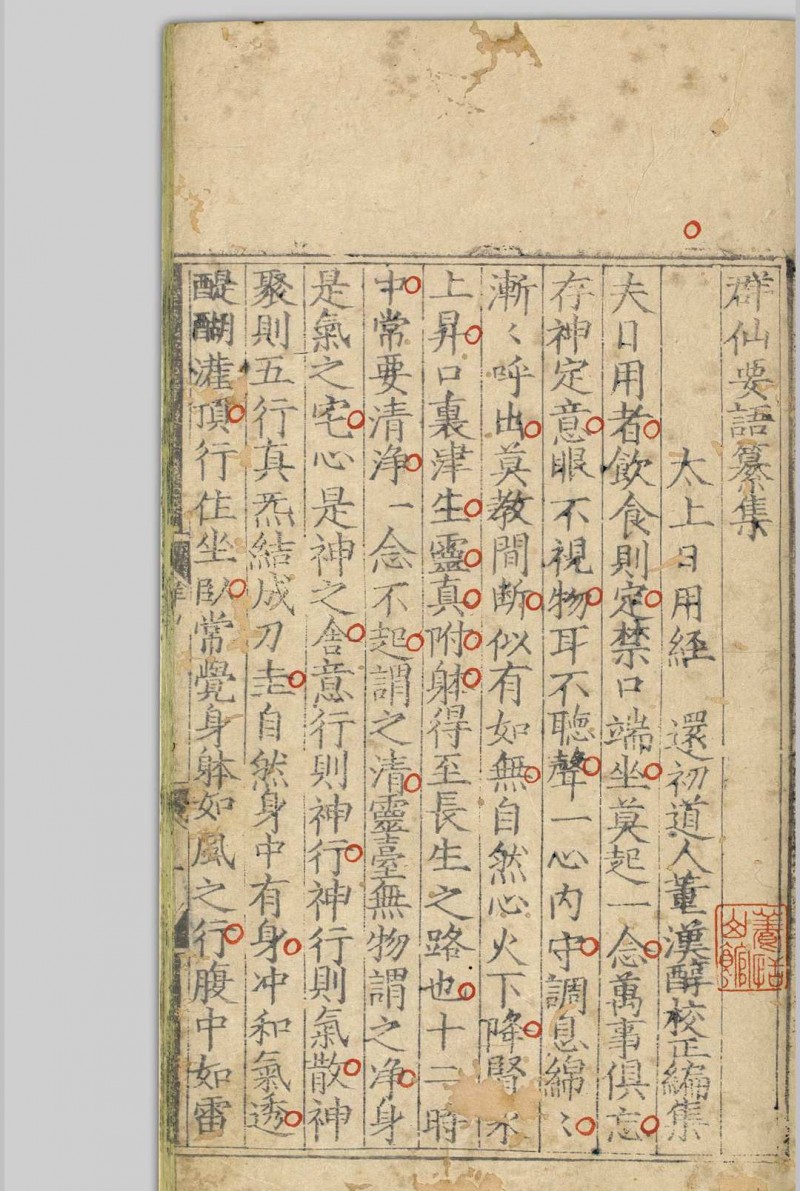 群仙要語纂集
太上日用経　還初道人董漢醇校正編集
夫日用者飲食則定禁口端坐莫起一念萬事俱忘
存神定意眼不視物耳不聽聲一心内守調息綿〻
漸〻呼出莫教間断似有如無自然心火下降腎水
上昇口裏津生靈真附躰得至長生之路也十二時
中常要清浄一念不起謂之清靈臺無物謂之净身
是氣之宅心是神之舎意行則神行神行則氣散神
聚則五行真炁結成刀圭自然身中有身冲和氣透
醍醐灌頂行住坐臥常覺身躰如風之行腹中如雷